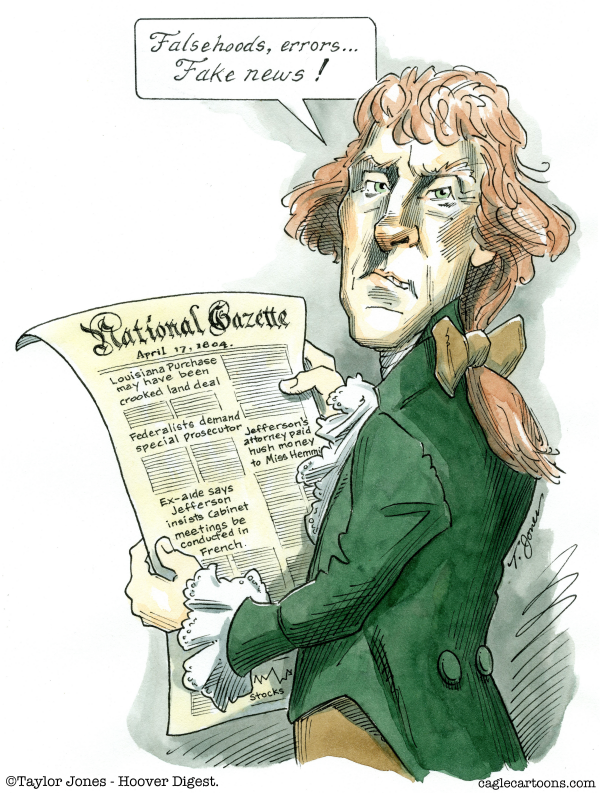 Falsehoods, errors...
Fake news!
National Gazette
April 17, 1804.
Louisiana Purchase
may have been
crooked land deal
Federalists demand
special prosecutor
Jefferson's
attorney paid
hush money
to Miss Hemmi
Ex-aide says
Jefferson
insists Cabinet
meetings be
conducted in
French.
Stocks
T. Jones
©Taylor Jones - Hoover Digest.
caglecartoons.com